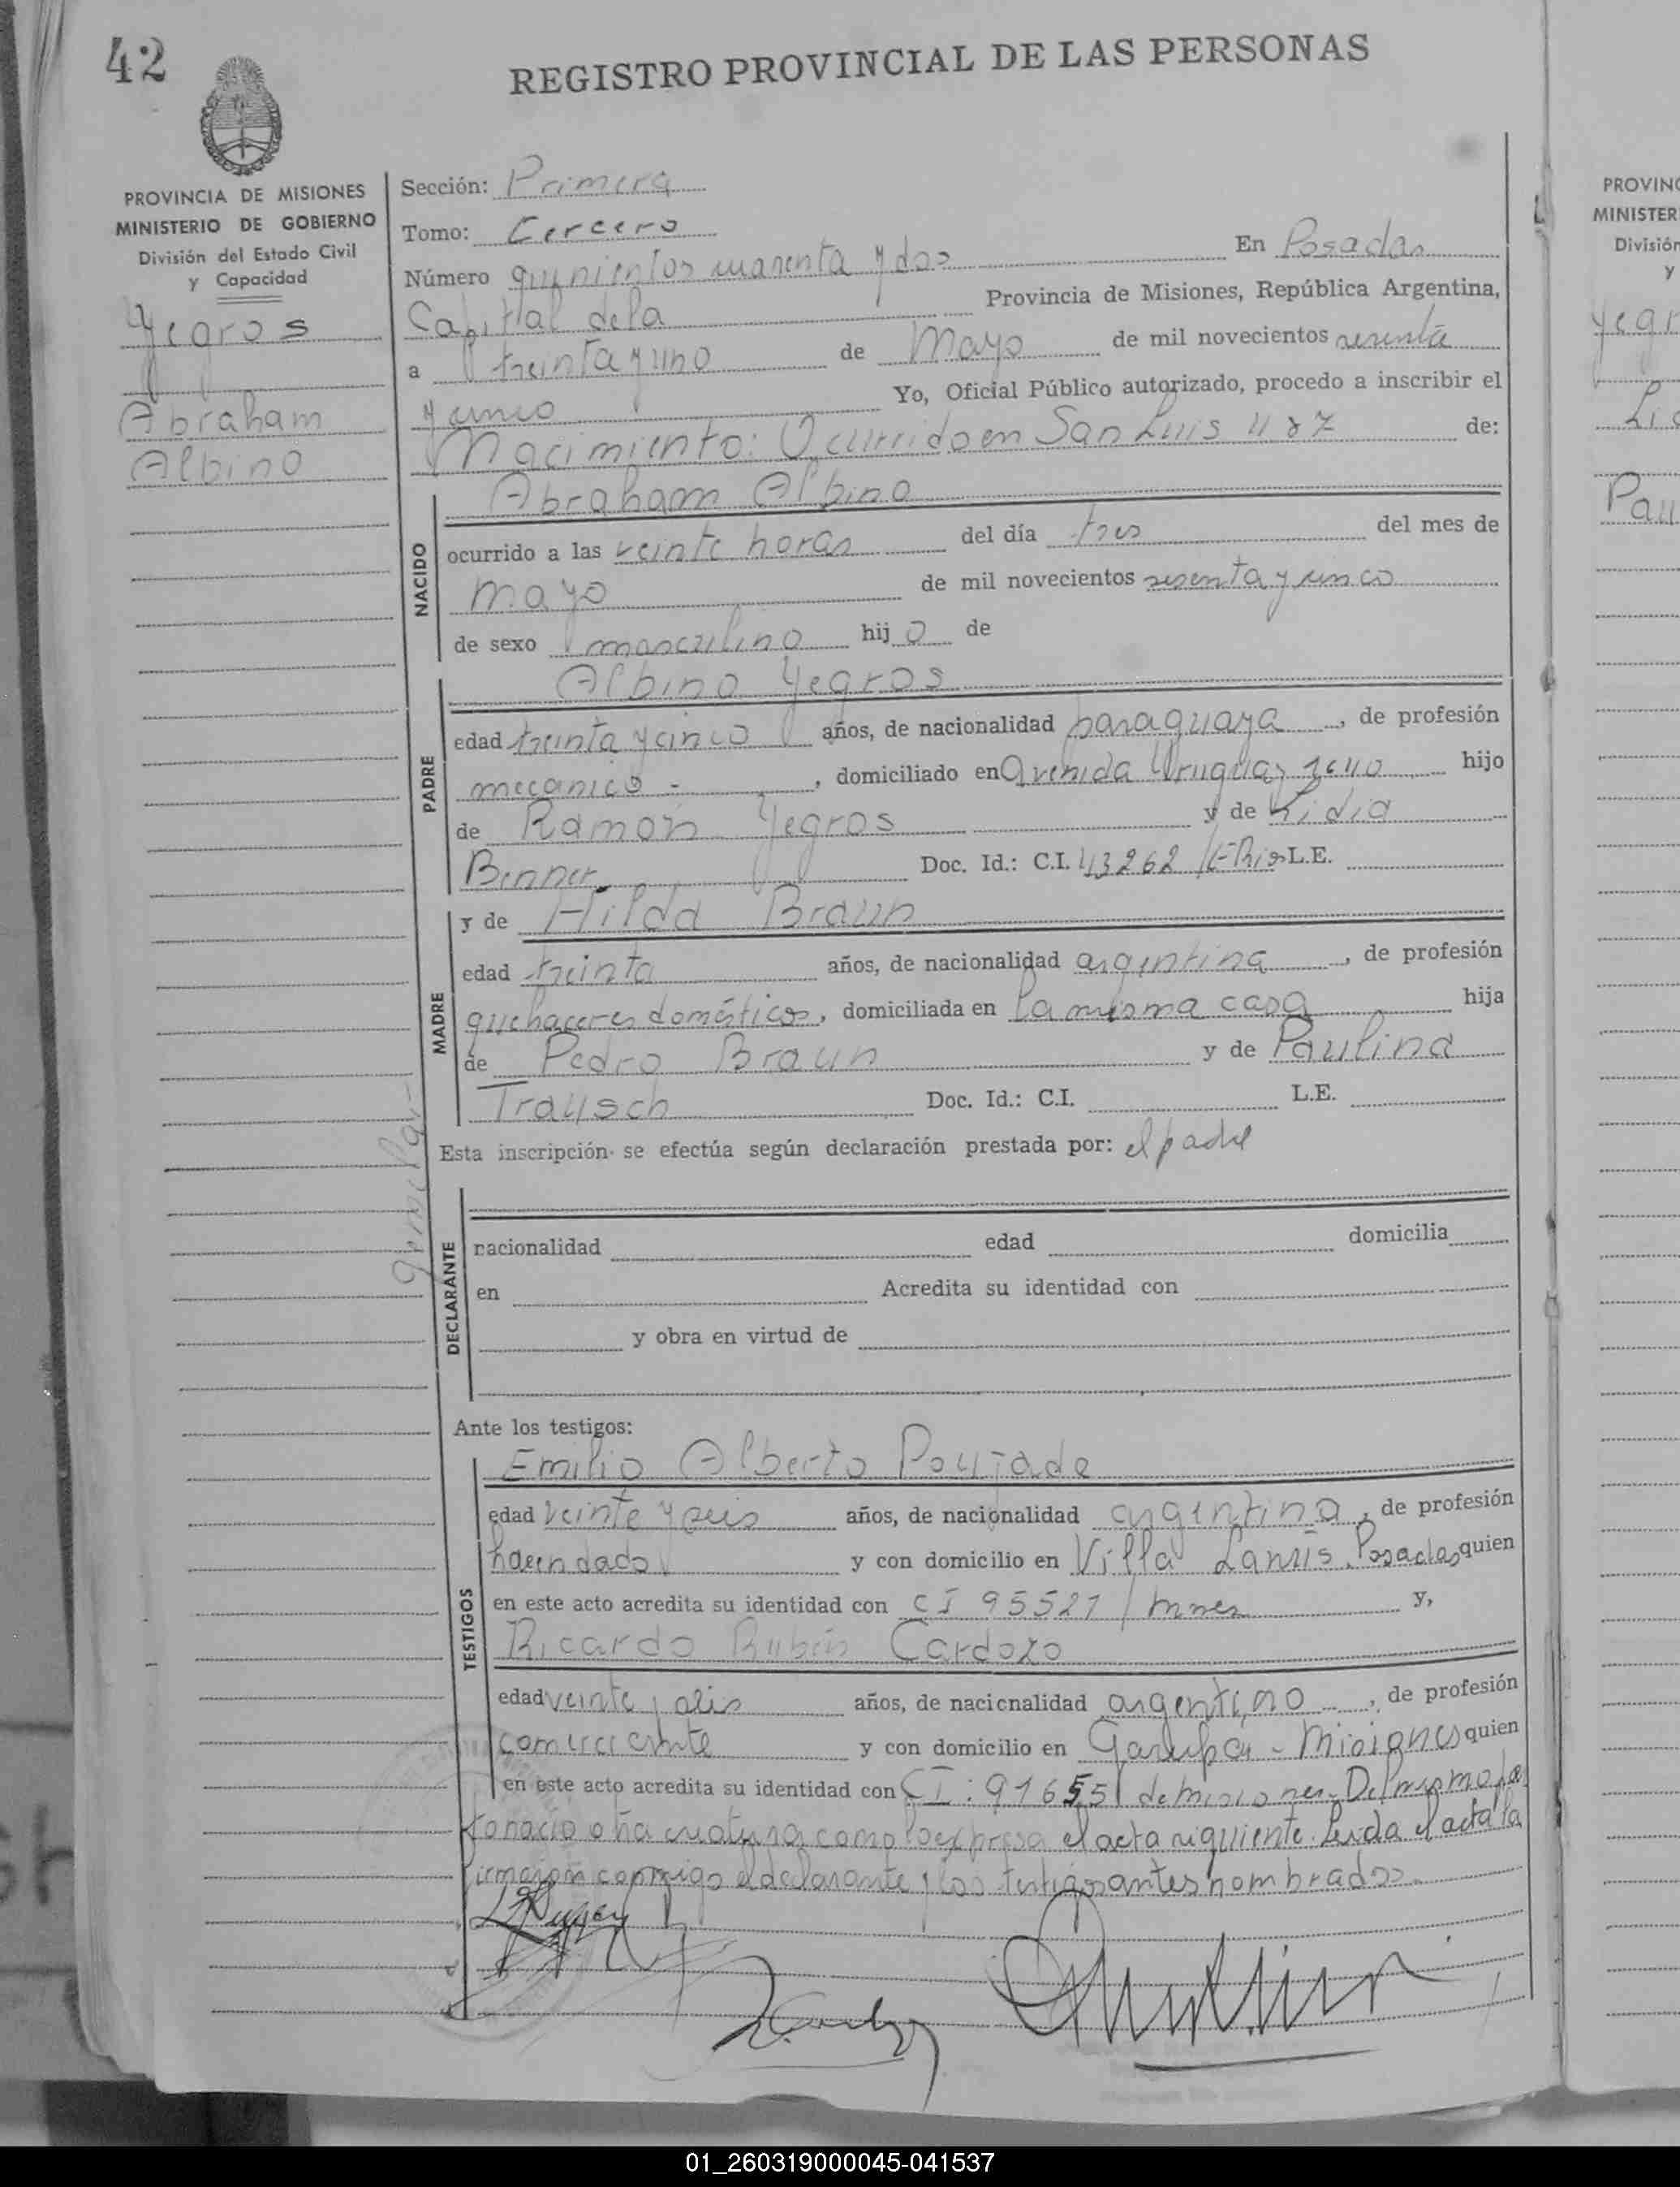 42
REGISTRO PROVINCIAL DE LAS PERSONAS
PROVINCIA DE MISIONES
MINISTERIO DE GOBIERNO
División del Estado Civil
y Capacidad
Yegros
Abraham
Albino
gemelar
Sección: Primera
Tomo: Tercero
Número quinientos cuarenta y dos En Posadas
Capital de la Provincia de Misiones, República Argentina,
a treinta y uno de Mayo de mil novecientos sesenta
y unco Yo, Oficial Público autorizado, procedo a inscribir el
Nacimiento: Ocurrido en San Luis 487 de:
NACIDO
Abraham Albino
ocurrido a las veinte horas del día tres del mes de
mayo de mil novecientos sesenta y unco
de sexo masculino hijo de
PADRE
Albino Yegros
edad treinta y cinco años, de nacionalidad paraguaya, de profesión
mecanico -, domiciliado en Avenida Uruguay hijo
de Ramón Yegros y de Lidia
Benner Doc. Id.: C.I. 43262 /E-Rios L.E.
MADRE
y de Hilda Braun
edad treinta años, de nacionalidad argentina, de profesión
quehaceres domésticos, domiciliada en la misma casa hija
de Pedro Braun y de Paulina
Trausch Doc. Id.: C.I. L.E.
Esta inscripción se efectúa según declaración prestada por: el padre
DECLARANTE
nacionalidad edad domicilia
en Acredita su identidad con
y obra en virtud de
Ante los testigos:
TESTIGOS
Emilio Alberto Poujade
edad veinte y seis años, de nacionalidad argentina, de profesión
hacendado y con domicilio en Villa Lanús. Posadas quien
en este acto acredita su identidad con CI 95521 / mnes y,
Ricardo Rubén Cardozo
edad veinte y seis años, de nacionalidad argentino, de profesión
comerciante y con domicilio en Garupá - Misiones quien
en este acto acredita su identidad con CI: 91655 de misiones. Del mismo
nacio otra criatura como lo expresa el acta siguiente. Leida el acta la
firmaron conmigo el declarante y los testigos antes nombrados.
PROVINC
MINISTER
División
y
Yegr
Li
Pau
01_260319000045-041537